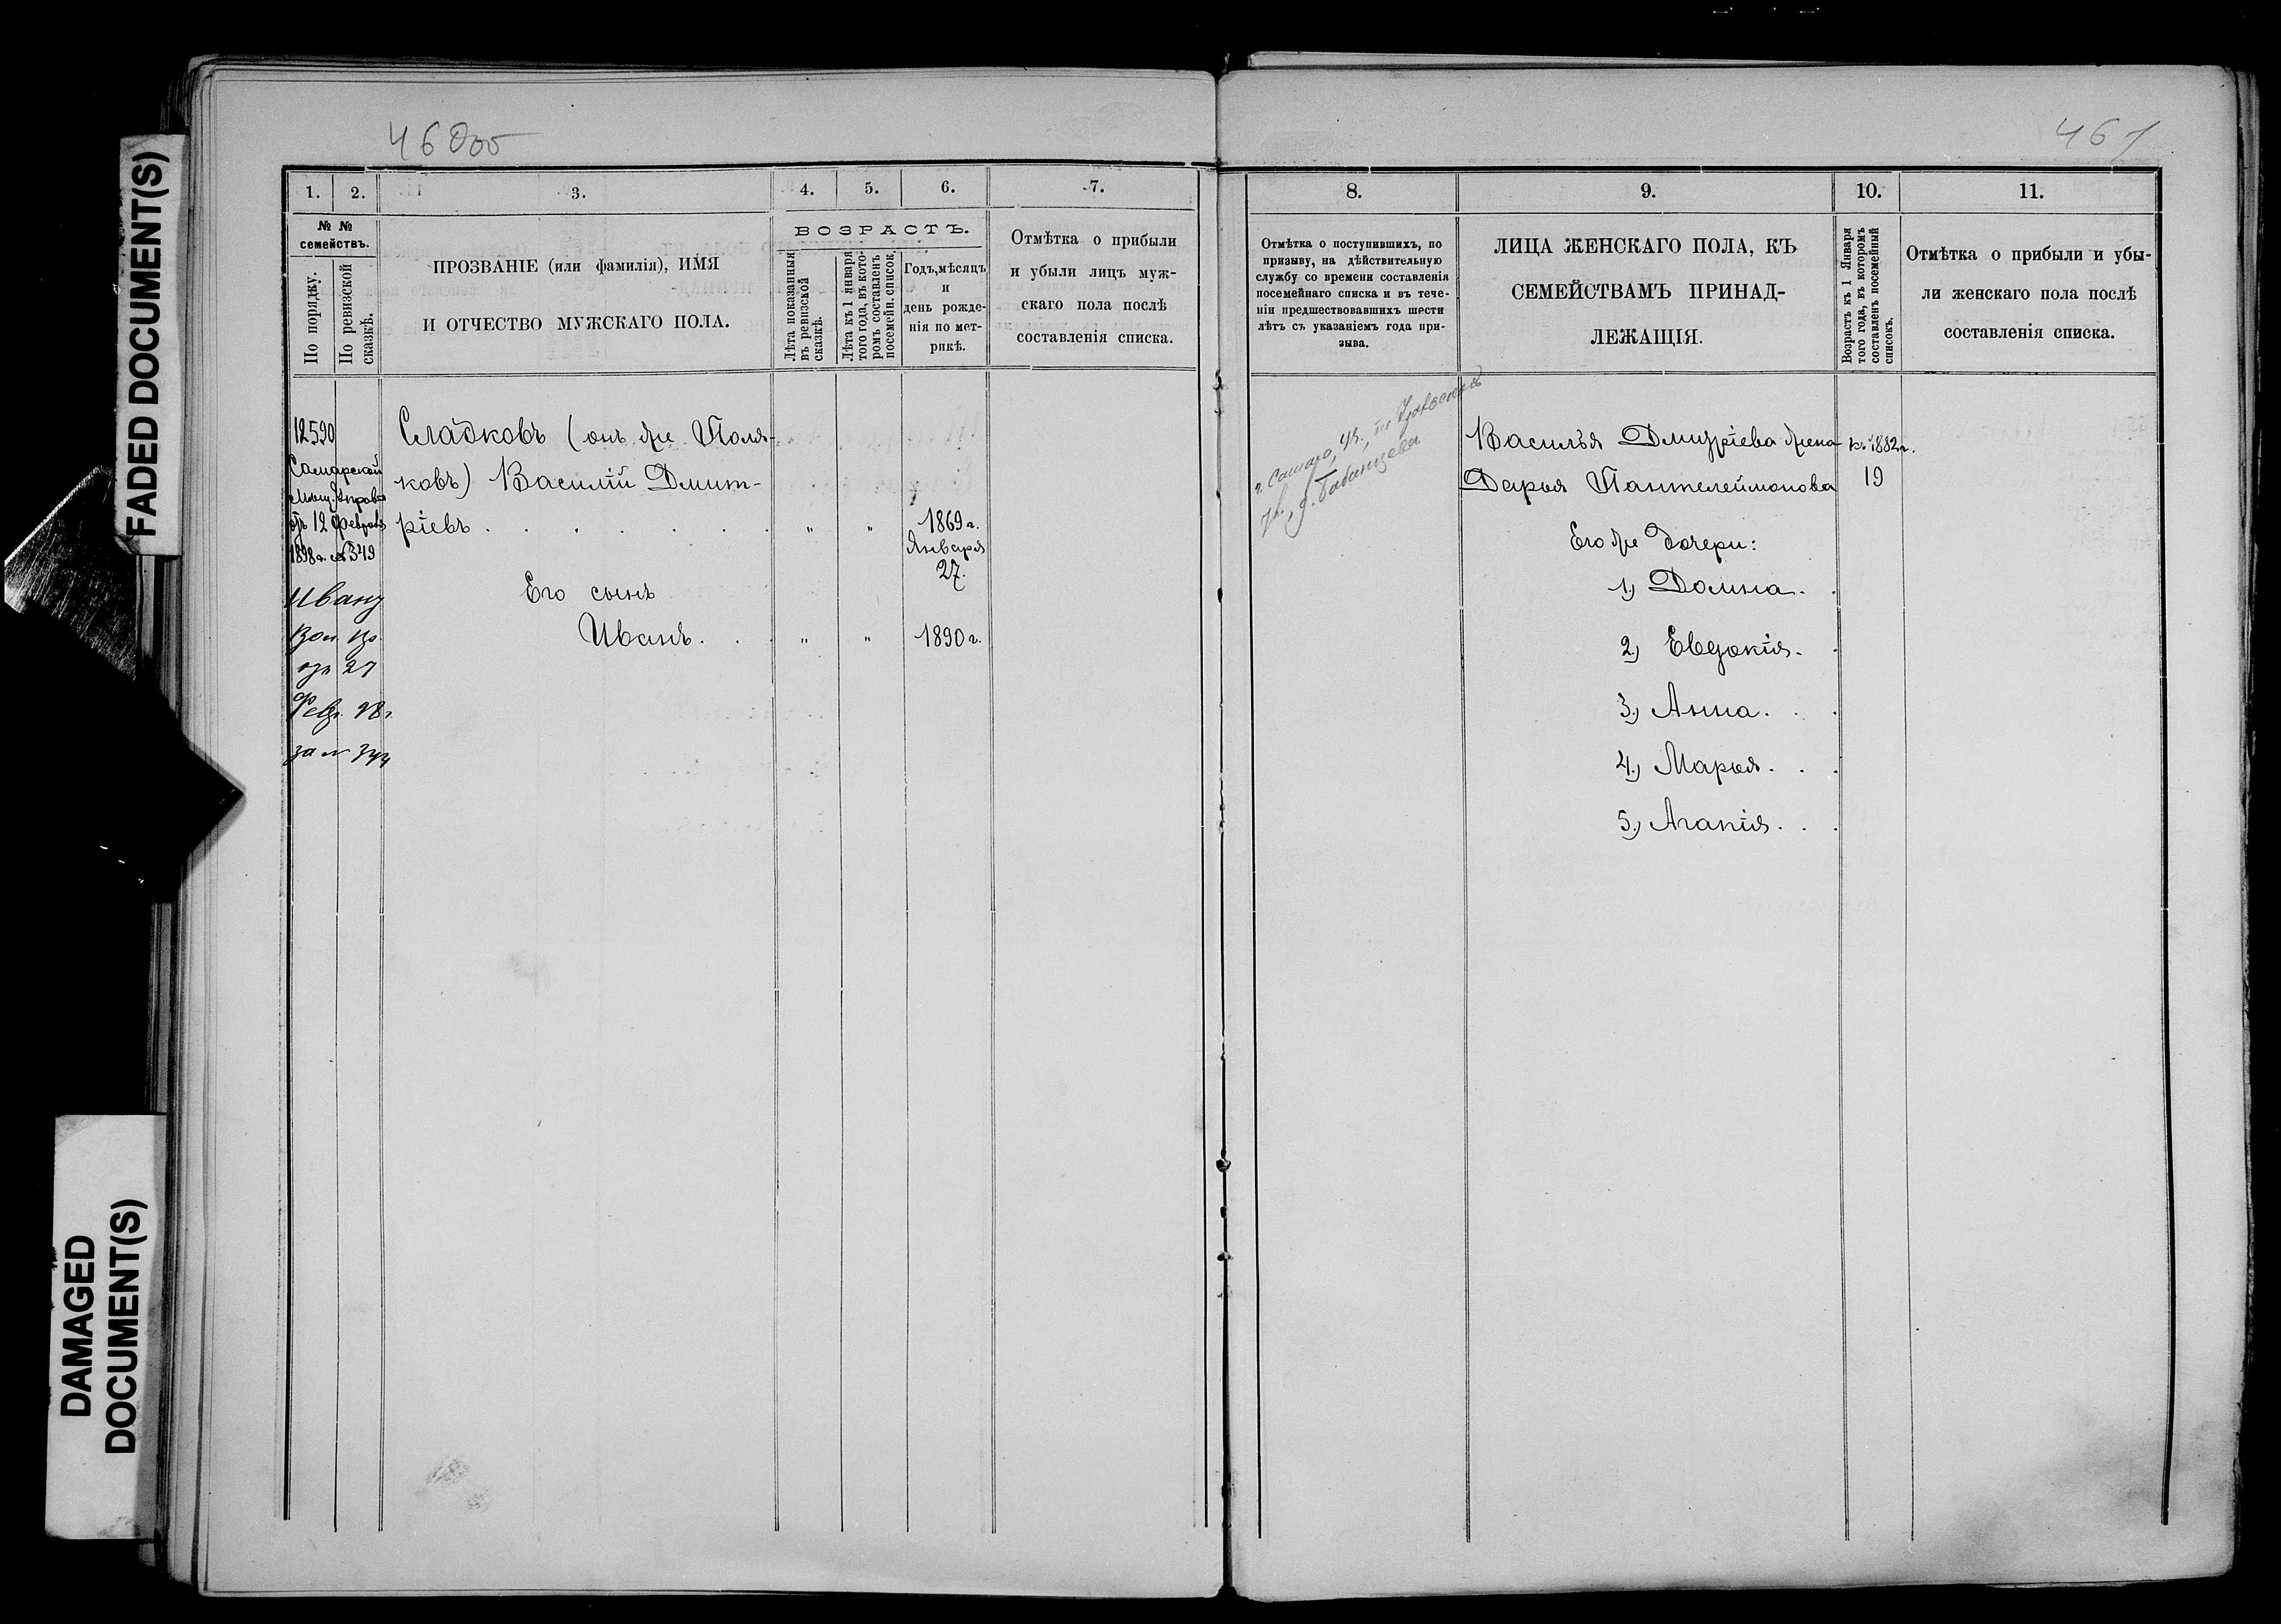 FADED DOCUMENT(S)
DAMAGED
DOCUMENT(S)
46 Доо
1. 2. 3. 4. 5. 6. 7.
№ №
семействъ.
По порядку.
По ревизской
сказкѣ.
ПРОЗВАНІЕ (или фамилія), ИМЯ
И ОТЧЕСТВО МУЖСКАГО ПОЛА.
ВОЗРАСТЪ.
Лѣта показанныя
въ ревизской
сказкѣ.
Лѣта къ 1 января
того года, въ кото-
ромъ составленъ
посемейн. список.
Годъ, мѣсяцъ
и
день рожде-
нія по мет-
рикѣ.
Отмѣтка о прибыли
и убыли лицъ муж-
скаго пола послѣ
составленія списка.
12590
Самарской
Мѣщ. Управы
отъ 12 Февраля
1898 г. № 349
Ивану
отъ 27
Февр. 98 г.
за №
Сладковъ (онъ же Поля-
ковъ) Василій Дмит-
ріевъ . . . . . . „ „ 1869 г.
Января
27.
Его сынъ
Иванъ. . . „ „ 1890 г.
467
8. 9. 10. 11.
Отмѣтка о поступившихъ, по
призыву, на дѣйствительную
службу со времени составленія
посемейнаго списка и въ тече-
ніи предшествовавшихъ шести
лѣтъ съ указаніемъ года при-
зыва.
ЛИЦА ЖЕНСКАГО ПОЛА, КЪ
СЕМЕЙСТВАМЪ ПРИНАД-
ЛЕЖАЩІЯ.
Возрастъ къ 1 Января
того года, въ которомъ
составленъ посемейный
списокъ.
Отмѣтка о прибыли и убы-
ли женскаго пола послѣ
составленія списка.
г. Самара,
Василья Дмитріева жена къ 1882 г.
Дарья Пантелеймонова 19
Его же дочери:
1) Домна. .
2) Евдокія. .
3) Анна. . .
4) Марья. . .
5) Агапія. . .